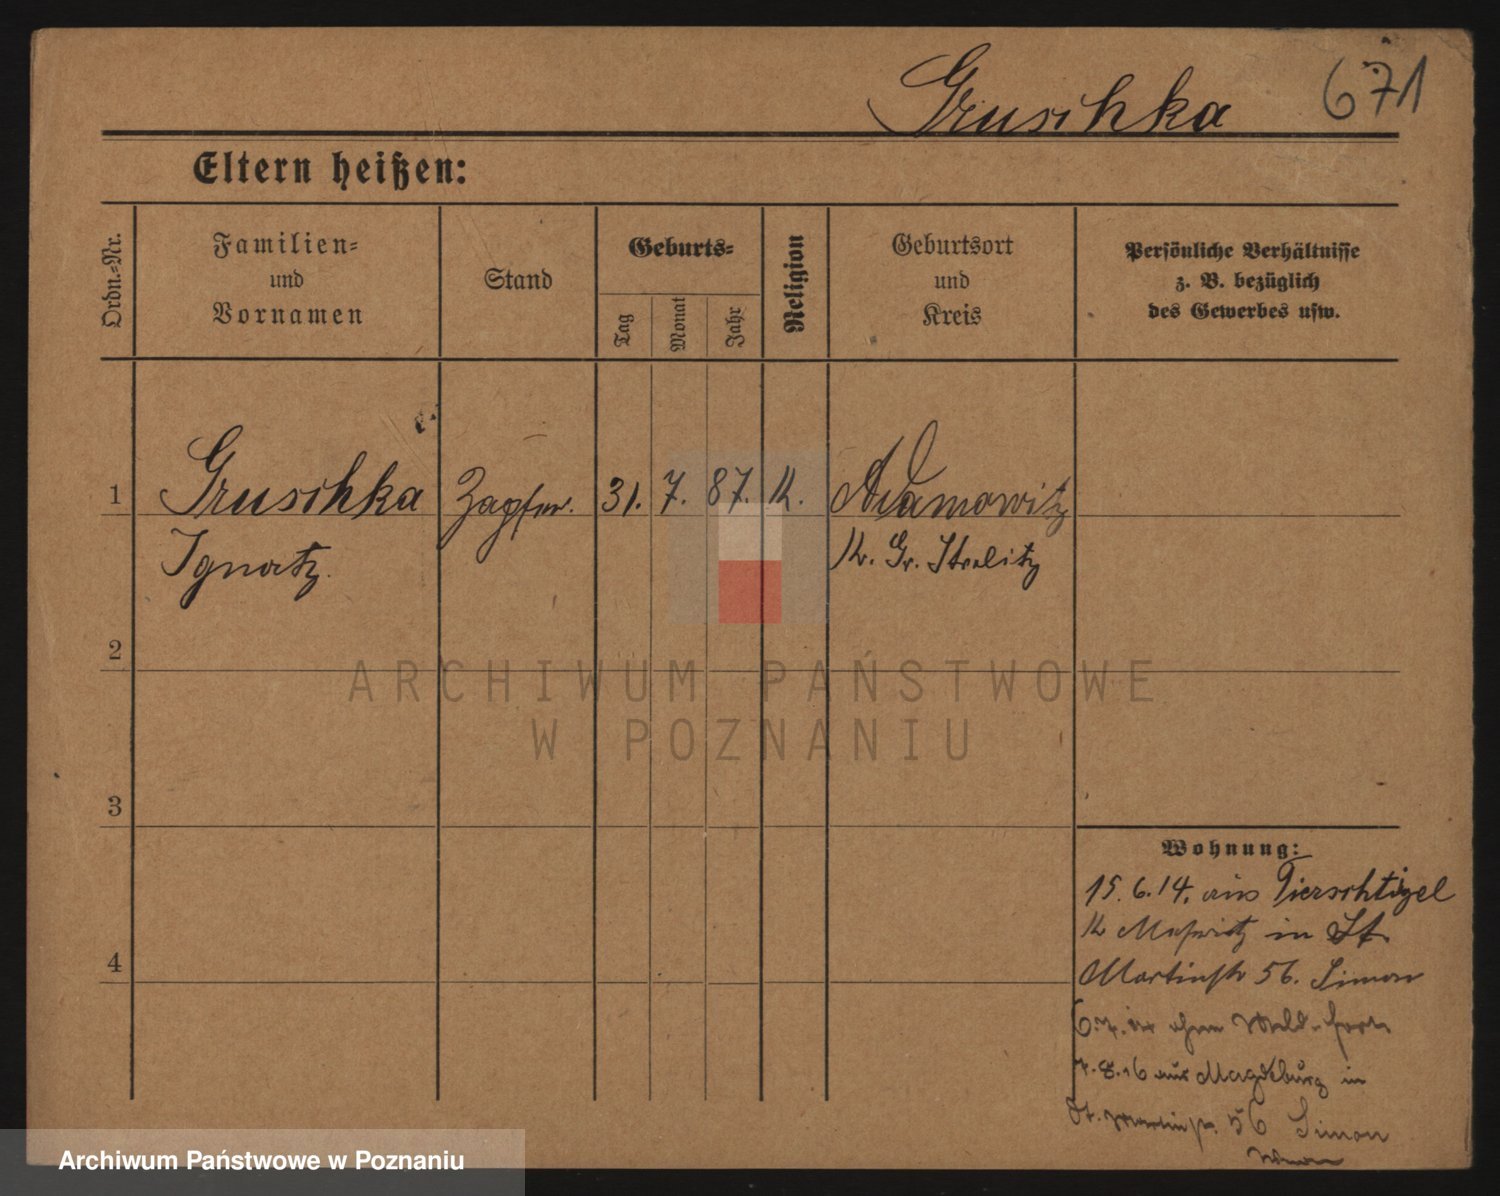 Gruschka 671
Eltern heißen:
Ordn.-Nr.
Familien-
und
Vornamen
Stand
Geburts-
Tag
Monat
Jahr
Religion
Geburtsort
und
Kreis
Persönliche Verhältnisse
z. B. bezüglich
des Gewerbes usw.
1 Gruschka Zapfer. 31. 7. 87. K. Adamowitz
Ignatz. Kr. Gr. Strelitz
2
3
4
ARCHIWUM PAŃSTWOWE
W POZNANIU
Wohnung:
15. 6. 14. aus Tierschtigel
K Meseritz in St.
Martinstr 56. Simon
6.7. ohne Meld.
7.8.16 aus Magdeburg in
St. Martinstr. 56 Simon
Archiwum Państwowe w Poznaniu